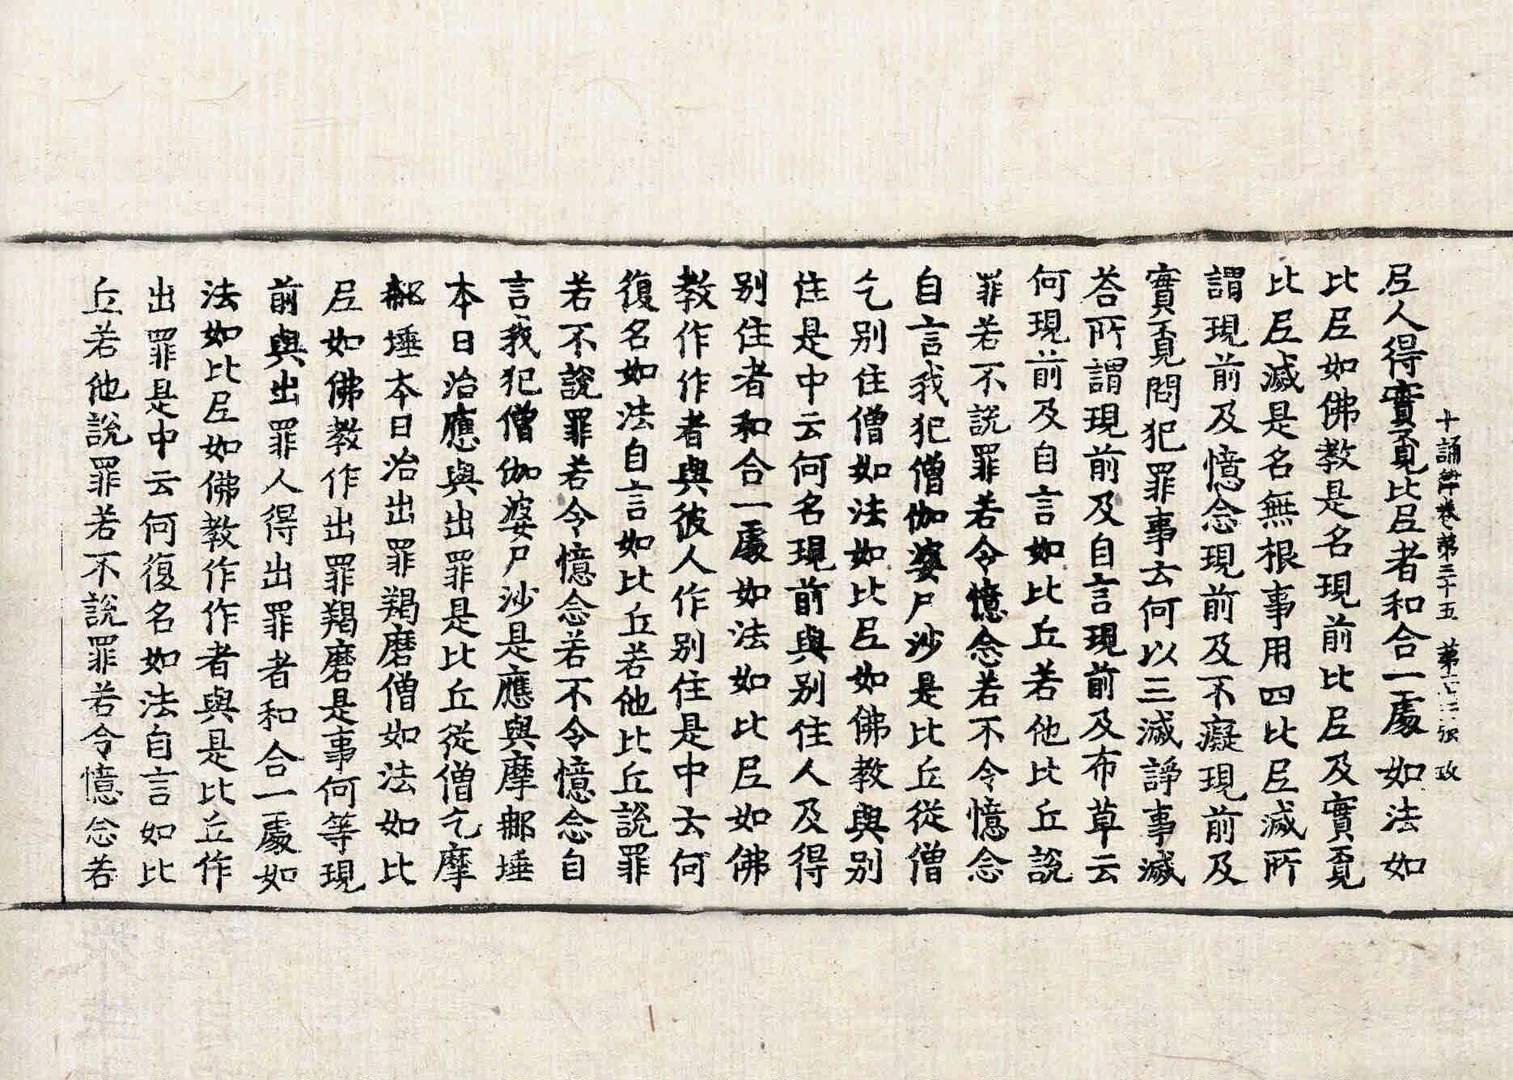 十誦律卷第三十五 第 張 政
尼人得實覓比尼者和合一處如法如
比尼如佛教是名現前比尼及實覓
比尼滅是名無根事用四比尼滅所
謂現前及憶念現前及不癡現前及
實覓問犯罪事云何以三滅諍事滅
荅所謂現前及自言現前及布草云
何現前及自言如比丘若他比丘說
罪若不說罪若令憶念若不令憶念
自言我犯僧伽婆尸沙是比丘從僧
乞別住僧如法如比尼如佛教與別
住是中云何名現前與別住人及得
別住者和合一處如法如比尼如佛
教作作者與彼人作別住是中云何
復名如法自言如比丘若他比丘說罪
若不說罪若令憶念若不令憶念自
言我犯僧伽婆尸沙是應與摩那埵
本日治應與出罪是比丘從僧乞摩
那埵本日治出罪羯磨僧如法如比
尼如佛教作出罪羯磨是事何等現
前與出罪人得出罪者和合一處如
法如比尼如佛教作作者與是比丘作
出罪是中云何復名如法自言如比
丘若他說罪若不說罪若令憶念若